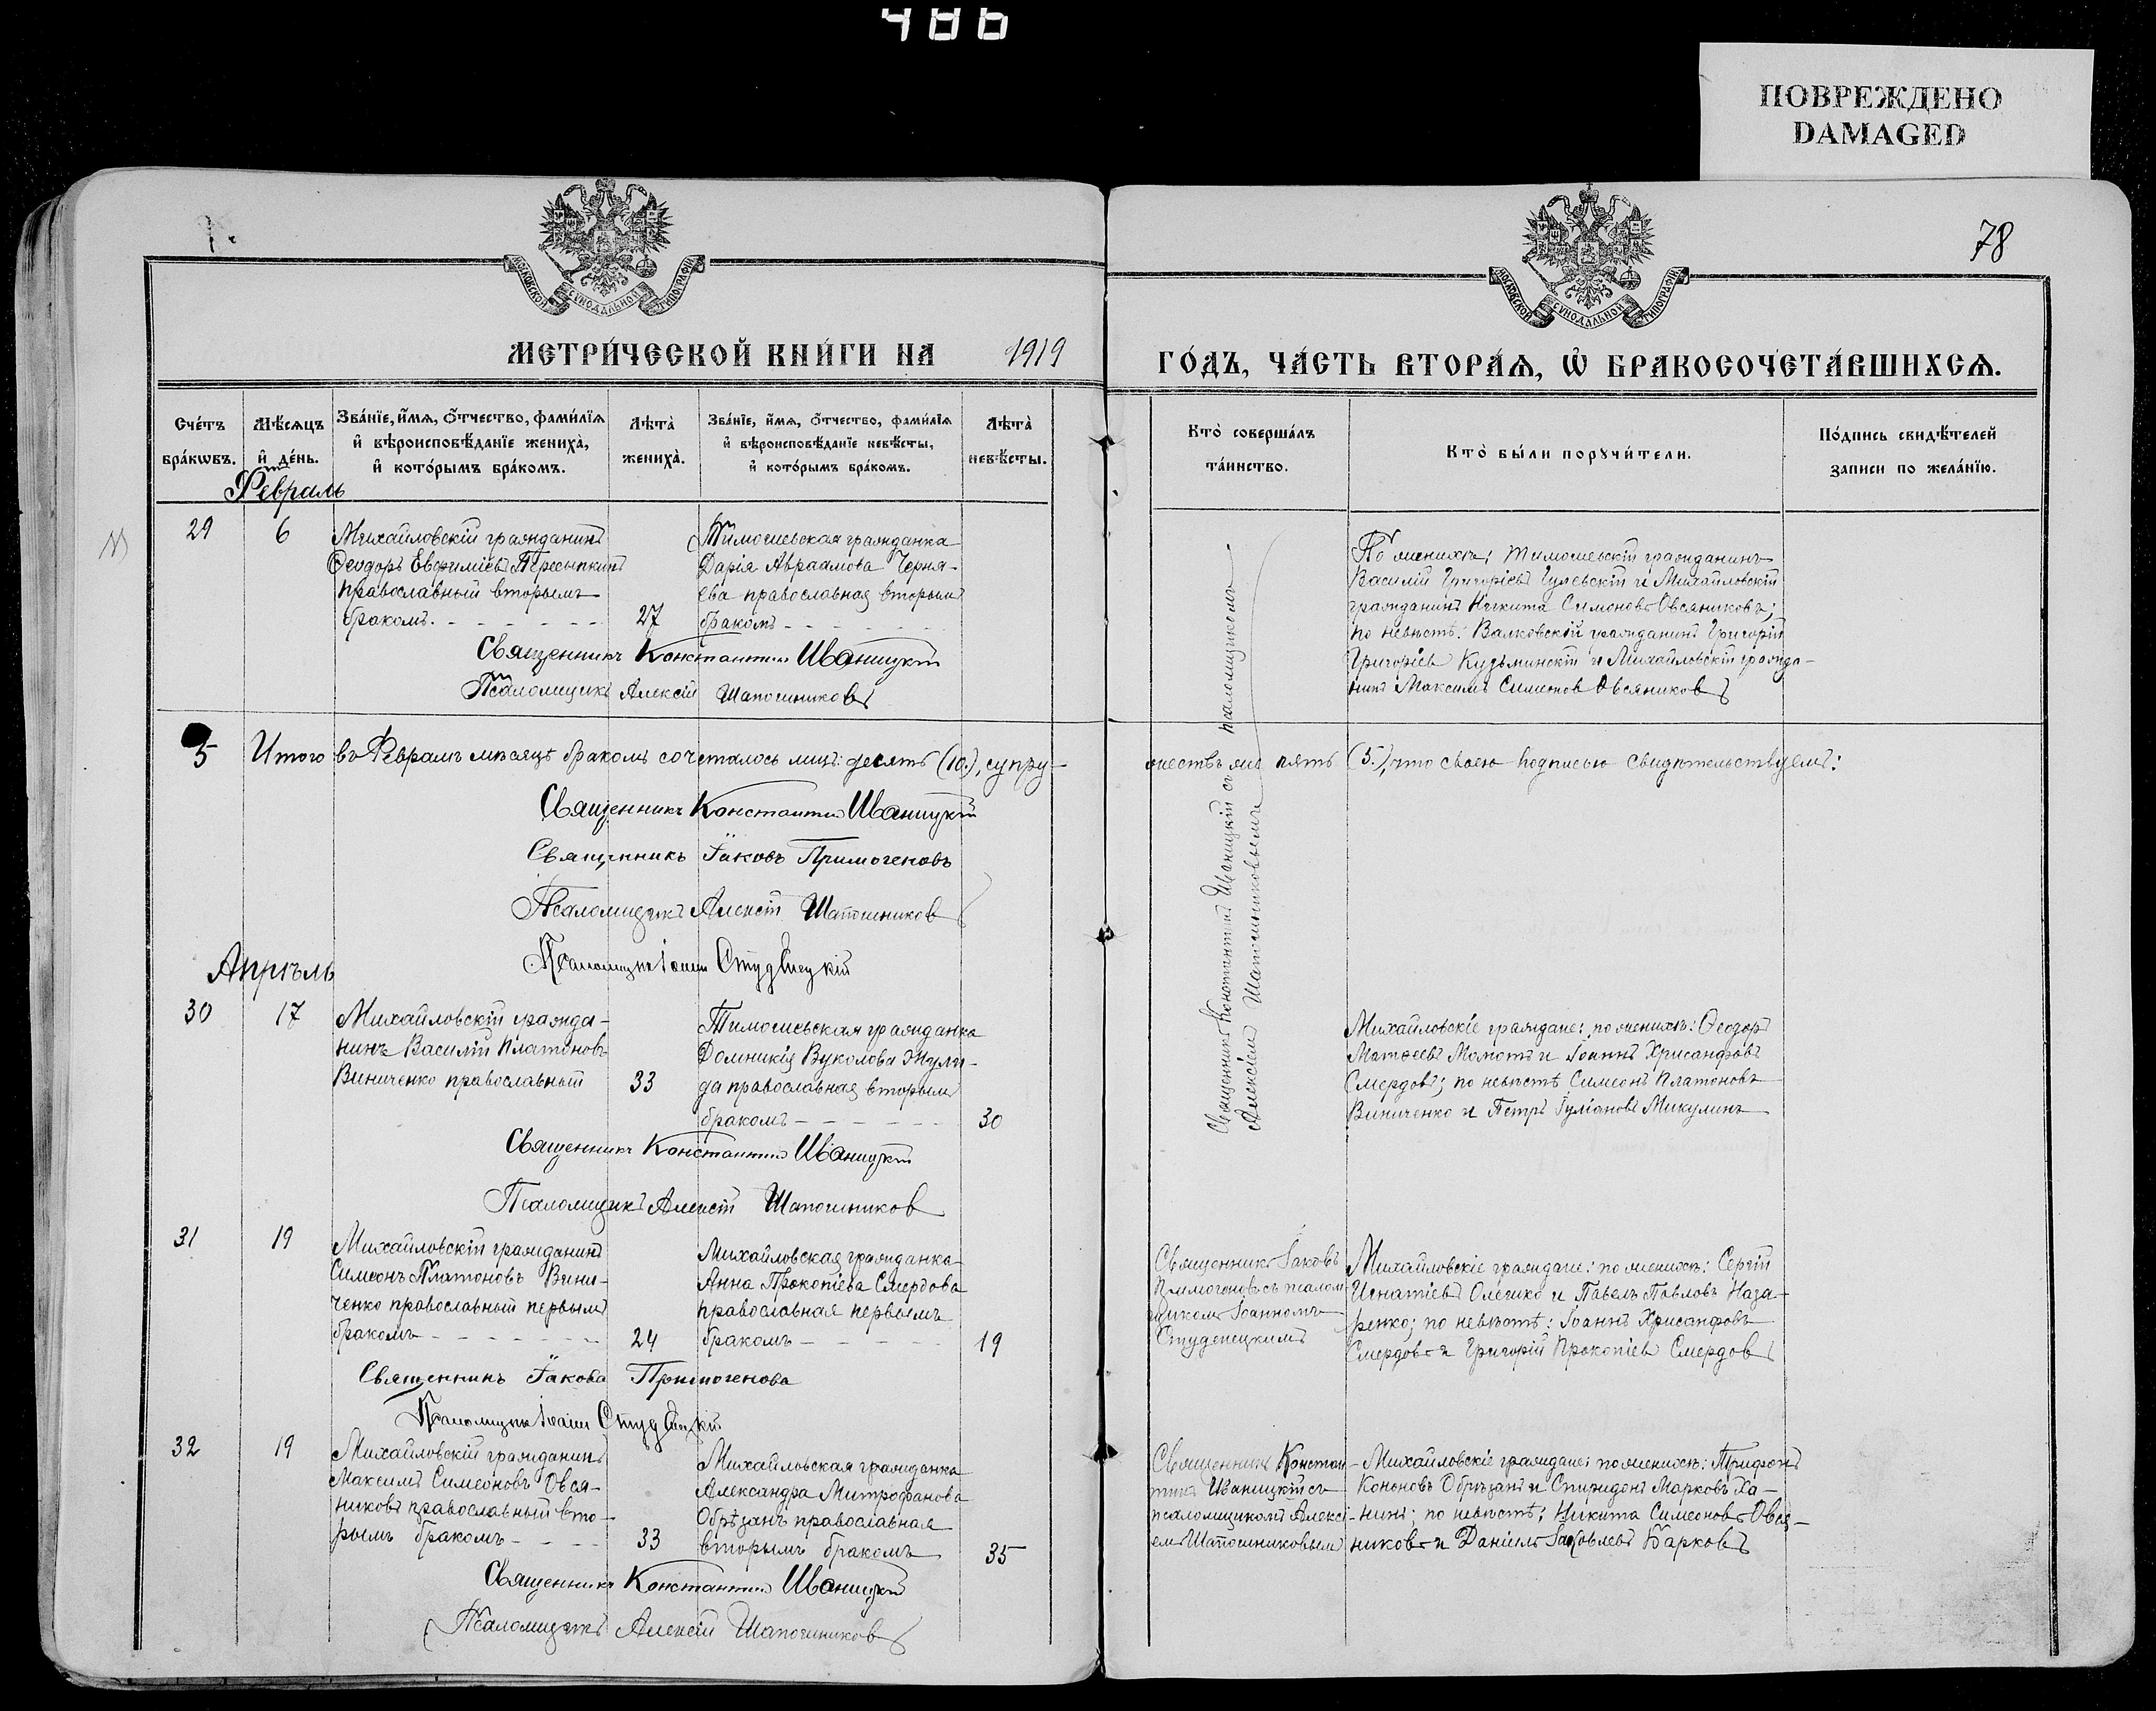 486
ПОВРЕЖДЕНО
DAMAGED
78
МОСКОВСКОЙ СѴНОДАЛЬНОЙ ТИПОГРАФІИ
МОСКОВСКОЙ СѴНОДАЛЬНОЙ ТИПОГРАФІИ
МЕТРИ́ЧЕСКОЙ КНИ́ГИ НА 1919
ГО́ДЪ, ЧА́СТЬ ВТОРА́Ѧ, Ѡ҆ БРАКОСОЧЕТА́ВШИХСѦ.
Сче́тъ бра́кѡвъ.
Мѣ́сѧцъ и҆ де́нь.
Зва́нїе, и҆́мѧ, о҆́тчество, фами́лїѧ
и҆ вѣроисповѣ́данїе жениха̀,
и҆ кото́рымъ бра́комъ.
Лѣта̀ жениха̀.
Зва́нїе, и҆́мѧ, о҆́тчество, фами́лїѧ
и҆ вѣроисповѣ́данїе невѣ́сты,
и҆ кото́рымъ бра́комъ.
Лѣта̀ невѣ́сты.
Кто̀ соверша́лъ
та́инство.
Кто̀ бы́ли порꙋчи́тели.
По́дпись свидѣ́телей
записи по жела́нїю.
Февраль
29
6
Михайловскій гражданинъ
Ѳеодоръ Евѳиміевъ Пересыпкинъ
православный вторымъ
бракомъ.
27
Тимошевская гражданка
Дарія Авраамова Черня-
ева православная вторымъ
бракомъ
По женихѣ: Тимошевскій гражданинъ
Василій Григоріевъ Гулевскій и Михайловскій
гражданинъ Никита Симоновъ Овсяниковъ;
по невѣстѣ: Валковскій гражданинъ Григорій
Григоріевъ Кудьминскій и Михайловскій гражда-
нинъ Максимъ Симонов Овсяниковъ
Священникъ Константинъ Иваницкій
Псаломщикъ Алексій Шапошниковъ
5
Итого въ Февралѣ мѣсяцѣ бракомъ сочеталось лицъ: десять (10.), супру-
жествъ же пять (5.), что своею подписью свидѣтельствуемъ:
Священникъ Константинъ Иваницкій
Священникъ Іаковъ Примогеновъ
Псаломщикъ Алексій Шапошниковъ
Псаломщикъ Іоаннъ Студенецкій
Священникъ Константинъ Иваницкій съ псаломщикомъ
Алексіемъ Шапошниковымъ
Апрѣль
30
17
Михайловскій гражда-
нинъ Василій Платоновъ
Виниченко православный
33
Тимошевская гражданка
Домникія Вуколова
да православная вторымъ
бракомъ
30
Михайловскіе граждане: по женихѣ: Ѳеодоръ
Матѳеевъ Момотъ и Іоаннъ Хрисанфовъ
Смердовъ; по невѣстѣ Симеонъ Платоновъ
Виниченко и Петръ Іуліановъ Микулинъ
Священникъ Константинъ Иваницкій
Псаломщикъ Алексій Шапошников
31
19
Михайловскій гражданинъ
Симеонъ Платоновъ Вини-
ченко православный первымъ
бракомъ
24
Михайловская гражданка
Анна Прокопіева Смердова
православная первымъ
бракомъ
19
Священникъ Іаковъ
Примогеновъ съ псалом
щикомъ Іоанномъ
Студенецкимъ
Михайловскіе граждане: по женихѣ: Сергій
Игнатіевъ Олешко и Павелъ Павловъ Наза-
ренко; по невѣстѣ: Іоаннъ Хрисанфовъ
Смердовъ и Григорій Прокопіевъ Смердовъ
Священникъ Іаковъ Примогеновъ
Псаломщикъ Іоаннъ Студенецкій
32
19
Михайловскій гражданинъ
Максимъ Симеоновъ Овся-
никовъ православный вто-
рымъ бракомъ
33
Михайловская гражданка
Александра Митрофанова
Обрѣзанъ православная
вторымъ бракомъ
35
Священникъ Констан-
тинъ Иваницкій съ
псаломщикомъ Алексі-
емъ Шапошниковымъ
Михайловскіе граждане: по женихѣ: Трифонъ
Кононовъ Обрѣзанъ и Спиридонъ Марковъ Ха-
нинъ; по невѣстѣ: Никита Симеоновъ Овся-
никовъ и Даніилъ Іаковлевъ Барковъ
Священникъ Константинъ Иваницкій
Псаломщикъ Алексій Шапошниковъ